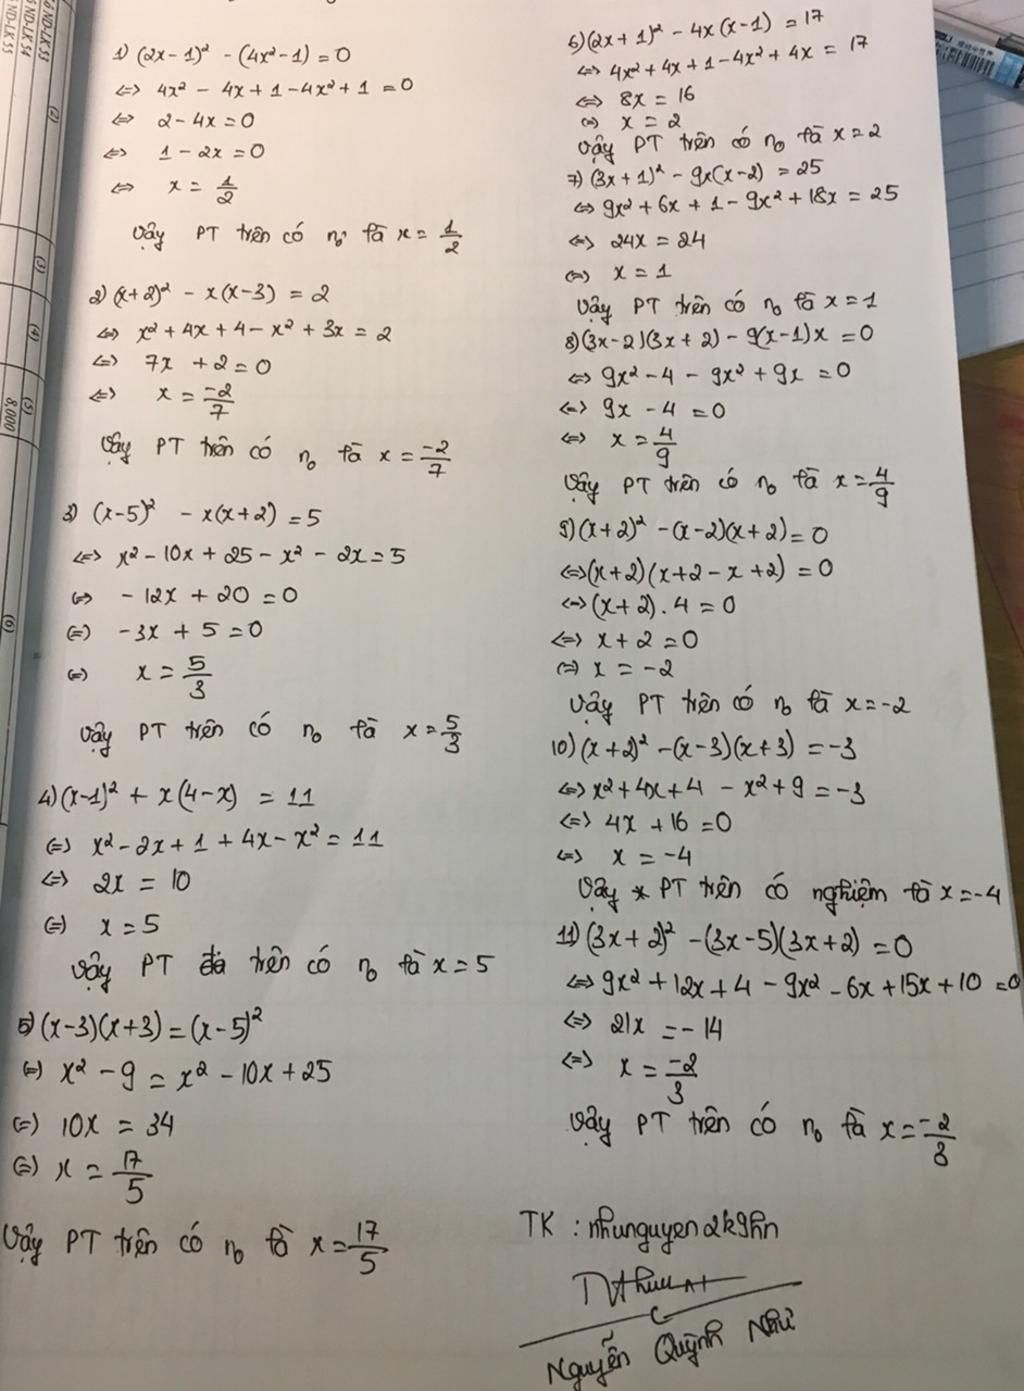 1) (2x-1)² - (4x²-1) = 0
<=> 4x² - 4x + 1 - 4x² + 1 = 0
<=> 2 - 4x = 0
<=> 1 - 2x = 0
<=> x = 1/2
Vậy PT trên có no là x = 1/2
2) (x+2)² - x(x-3) = 2
<=> x² + 4x + 4 - x² + 3x = 2
<=> 7x + 2 = 0
<=> x = -2/7
Vậy PT trên có no là x = -2/7
3) (x-5)² - x(x+2) = 5
<=> x² - 10x + 25 - x² - 2x = 5
<=> -12x + 20 = 0
<=> -3x + 5 = 0
<=> x = 5/3
Vậy PT trên có no là x = 5/3
4) (x-1)² + x(4-x) = 11
<=> x² - 2x + 1 + 4x - x² = 11
<=> 2x = 10
<=> x = 5
Vậy PT đã trên có no là x = 5
5) (x-3)(x+3) = (x-5)²
<=> x² - 9 = x² - 10x + 25
<=> 10x = 34
<=> x = 17/5
Vậy PT trên có no là x = 17/5
6) (2x+1)² - 4x(x-1) = 17
<=> 4x² + 4x + 1 - 4x² + 4x = 17
<=> 8x = 16
<=> x = 2
Vậy PT trên có no là x = 2
7) (3x+1)² - 9x(x-2) = 25
<=> 9x² + 6x + 1 - 9x² + 18x = 25
<=> 24x = 24
<=> x = 1
Vậy PT trên có no là x = 1
8) (3x-2)(3x+2) - 9(x-1)x = 0
<=> 9x² - 4 - 9x² + 9x = 0
<=> 9x - 4 = 0
<=> x = 4/9
Vậy PT trên có no là x = 4/9
9) (x+2)² - (x-2)(x+2) = 0
<=> (x+2)(x+2-x+2) = 0
<=> (x+2).4 = 0
<=> x + 2 = 0
<=> x = -2
Vậy PT trên có no là x = -2
10) (x+2)² - (x-3)(x+3) = -3
<=> x² + 4x + 4 - x² + 9 = -3
<=> 4x + 16 = 0
<=> x = -4
Vậy PT trên có nghiệm là x = -4
11) (3x+2)² - (3x-5)(3x+2) = 0
<=> 9x² + 12x + 4 - 9x² - 6x + 15x + 10 = 0
<=> 21x = -14
<=> x = -2/3
Vậy PT trên có no là x = -2/3
TK : nhunguyen2k9hn
Nguyễn Quỳnh Như
(2)
(3)
(4)
(5)
8.000
(6)